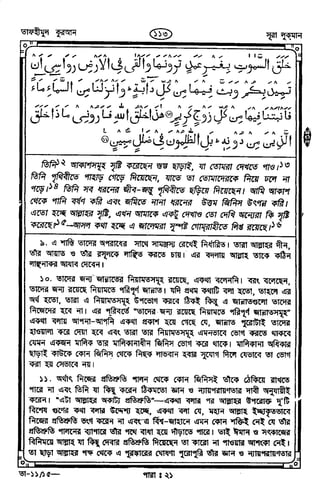 তাফহীমুল কুরআন
১১৩
সূরা লুকমান
خَلَقَ السَّمٰوٰتِ بِغَيْرِ عَمَدٍ تَرَوْنَهَا وَاَلْقٰى فِى الْاَرْضِ رَوَاسِىَ اَنْ
تَمِيْدَ بِكُمْ وَبَثَّ فِيْهَا مِنْ كُلِّ دَآبَّةٍ ؕ وَاَنْزَلْنَا مِنَ السَّمَآءِ مَآءً
فَاَنْۢبَتْنَا فِيْهَا مِنْ كُلِّ زَوْجٍ كَرِيْمٍ ۝ هٰذَا خَلْقُ اللّٰهِ فَاَرُوْنِىْ مَاذَا خَلَقَ
الَّذِيْنَ مِنْ دُوْنِهٖ ؕ بَلِ الظّٰلِمُوْنَ فِىْ ضَلٰلٍ مُّبِيْنٍ ۝
তিনি১২ আকাশসমূহ সৃষ্টি করেছেন স্তম্ভ ছাড়াই, যা তোমরা দেখতে পাও।১৩
তিনি পৃথিবীতে পাহাড় গেড়ে দিয়েছেন, যাতে তা তোমাদেরকে নিয়ে ঢলে না
পড়ে।১৪ তিনি সব ধরনের জীব-জন্তু পৃথিবীতে ছড়িয়ে দিয়েছেন। আমি আকাশ
থেকে পানি বর্ষণ করি এবং জমিতে নানা ধরনের উত্তম জিনিস উৎপন্ন করি।
এতো হচ্ছে আল্লাহর সৃষ্টি, এখন আমাকে একটু দেখাও তো দেখি অন্যেরা কি সৃষ্টি
করেছে।১৫—আসল কথা হচ্ছে এ জালেমরা সুস্পষ্ট গোমরাহীতে লিপ্ত রয়েছে।১৬
৯. এ শাস্তি তাদের অপরাধের সাথে সামঞ্জস্য রেখেই নির্ধারিত। তারা আল্লাহর দীন,
তাঁর আয়াত ও তাঁর রসূলকে লাঞ্ছিত করতে চায়। এর বদলায় আল্লাহ তাকে কঠিন
লাঞ্ছনাকর আযাব দেবেন।
১০. তাদের জন্য জান্নাতের নিয়ামতসমূহ রয়েছে, একথা বলেননি। বরং বলেছেন,
তাদের জন্য রয়েছে নিয়ামতে পরিপূর্ণ জান্নাত। যদি প্রথম কথাটি বলা হতো, তাহলে এর
অর্থ হতো, তারা এ নিয়ামতসমূহ উপভোগ করবে ঠিকই কিন্তু এ জান্নাতগুলো তাদের
নিজেদের হবে না। এর পরিবর্তে "তাদের জন্য রয়েছে নিয়ামতে পরিপূর্ণ জান্নাতসমূহ"
একথা বলায় আপনা-আপনি একথা প্রকাশ হয়ে গেছে যে, জান্নাত পুরোটাই তাদের
হাওয়ালা করে দেয়া হবে এবং তারা তার নিয়ামতসমূহ এমনভাবে ভোগ করতে থাকবে
যেমন একজন মালিক তার মালিকানাধীন জিনিস ভোগ করে থাকে। মালিকানা অধিকার
ছাড়াই কাউকে কোন জিনিস থেকে নিছক লাভবান হবার সুযোগ দিলে যেভাবে তা ভোগ
করা হয় সেভাবে নয়।
১১. অর্থাৎ নিজের প্রতিশ্রুতি পালন থেকে কোন জিনিসই তাঁকে ঠেকিয়ে রাখতে
পারে না এবং তিনি যা কিছু করেন ঠিকমতো জ্ঞান ও ন্যায়পরায়ণতার দাবী অনুযায়ীই
করেন। "এটা আল্লাহর অকাট্য প্রতিশ্রুতি"—একথা বলার পর আল্লাহর উপরোক্ত দু'টি
বিশেষ গুণের কথা বলার উদ্দেশ্য হচ্ছে, একথা বলা যে, মহান আল্লাহ ইচ্ছাকৃতভাবে
নিজের প্রতিশ্রুতি ভংগ করেন না এবং এ বিশ্ব-জাহানে এমন কোন শক্তিই নেই যে তাঁর
প্রতিশ্রুতি পালনের ব্যাপারে তাঁর পথে বাধা হয়ে দাঁড়াতে পারে। তাই ঈমান ও সৎকাজের
বিনিময়ে আল্লাহ যা কিছু দেবার প্রতিশ্রুতি দিয়েছেন তা কারো না পাওয়ার আশংকা নেই।
তা ছাড়া আল্লাহর পক্ষ থেকে এ পুরস্কারের ঘোষণা পুরোপুরি তাঁর জ্ঞান ও ন্যায়পরায়ণতার
তা-১১/১৫—
পারা : ২১